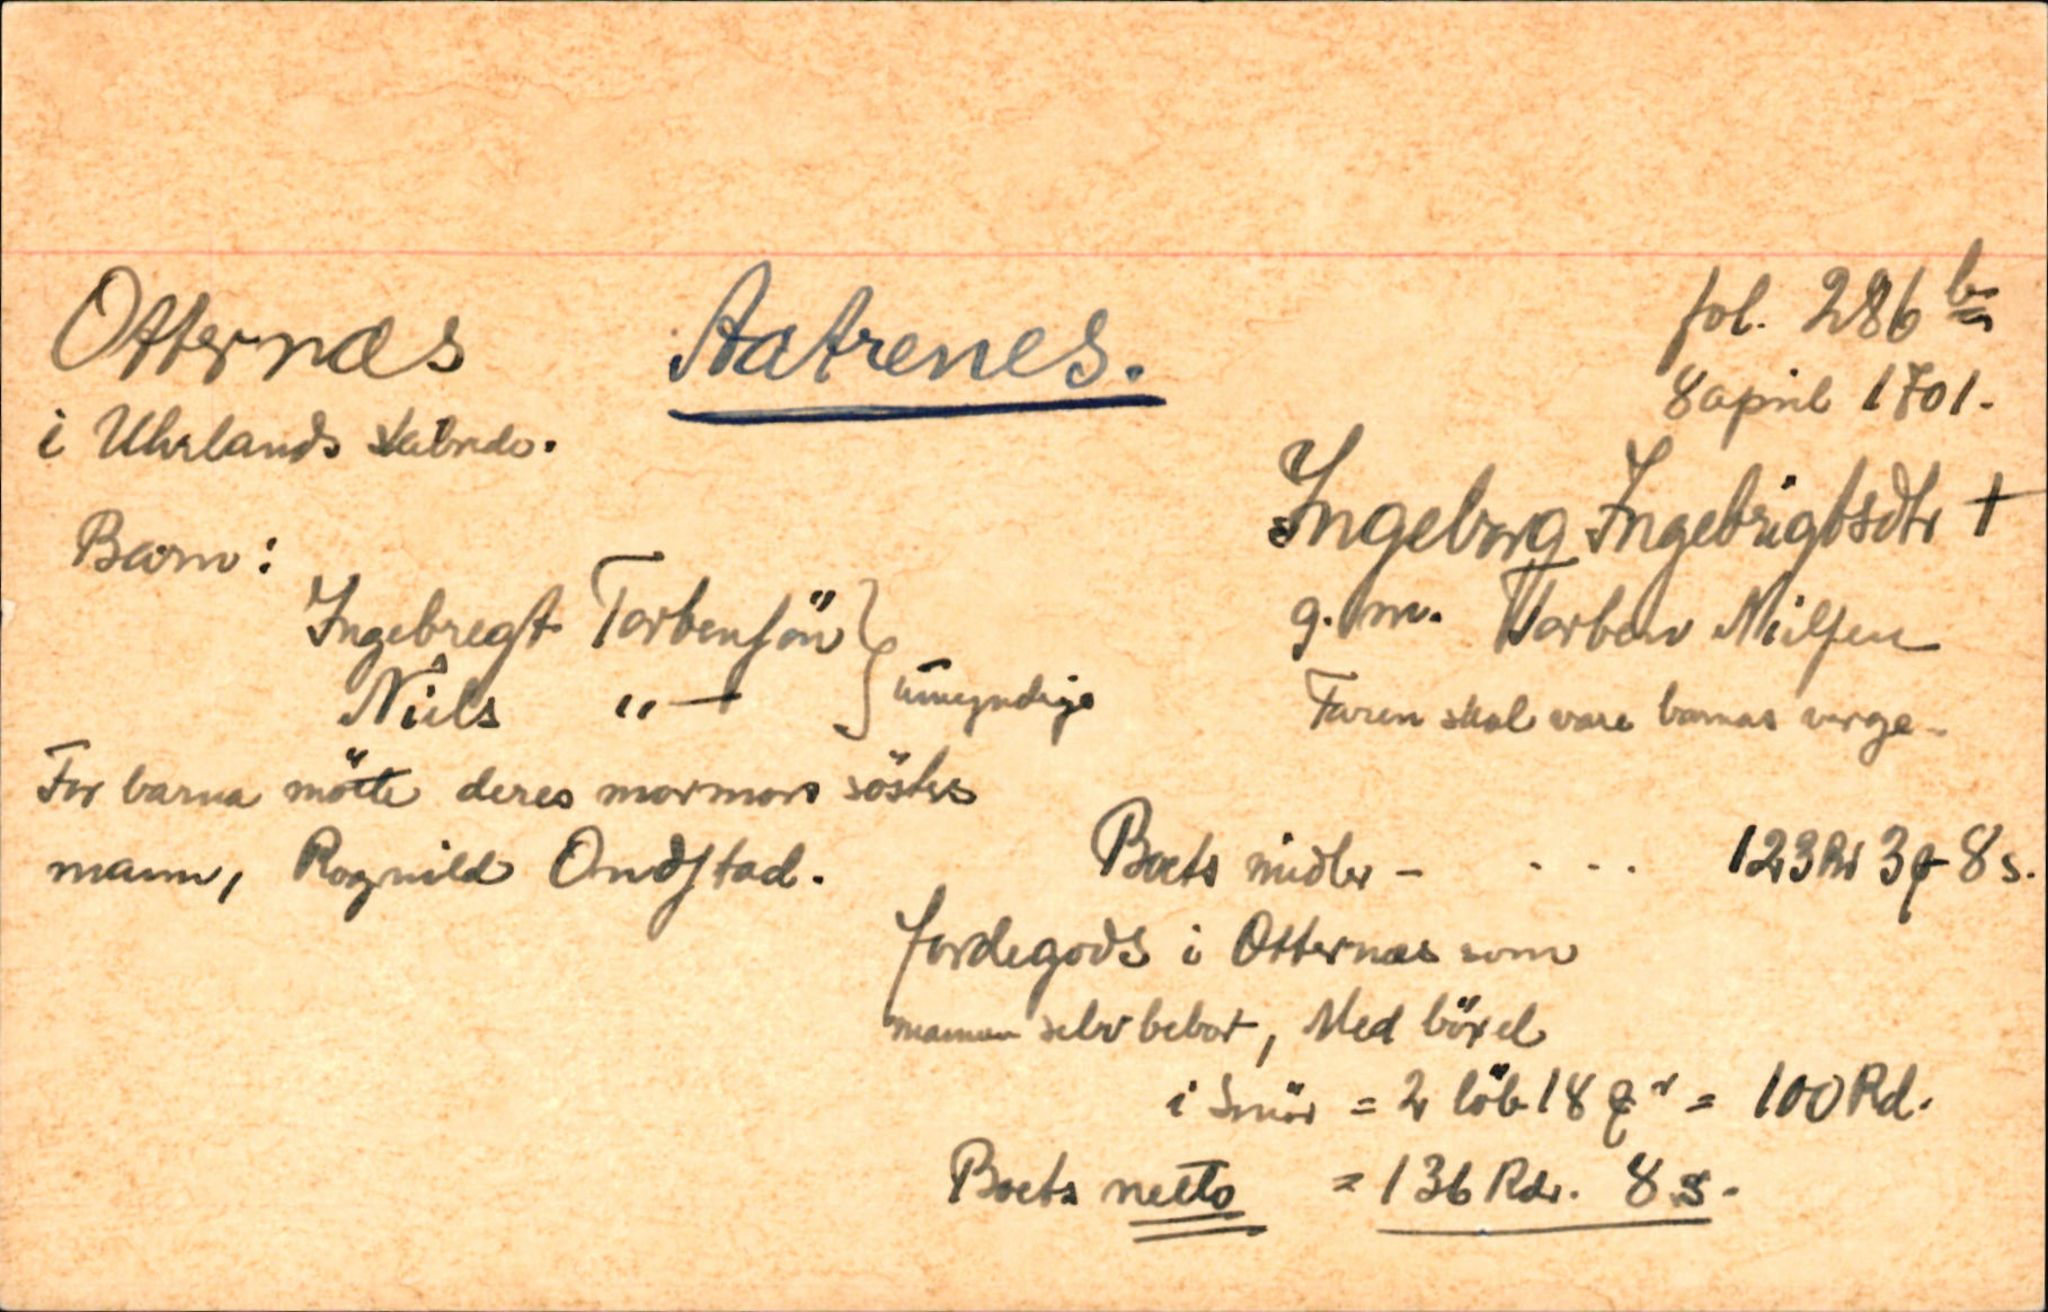 Otternæs Aatrenes. fol. 286 b
8 april 1701.
i Uhrlands skibrede.
Ingeborg Ingebrigtsdtr †
Barn:
g. m. Torben Nielsen
Ingebregt Torbensön
Niels "— } umyndige
Faren skal være barnas verge.
For barna mötte deres mormors sösters
mann, Rognild Ondstad.
Boets midler - . . . 123 Rd 3 q 8 s.
Jordegods i Otternæs som
mannen selv bebor, Med böxel
i Smör = 2 löb 18 = 100 Rd.
Boets netto = 136 Rdr. 8 s.